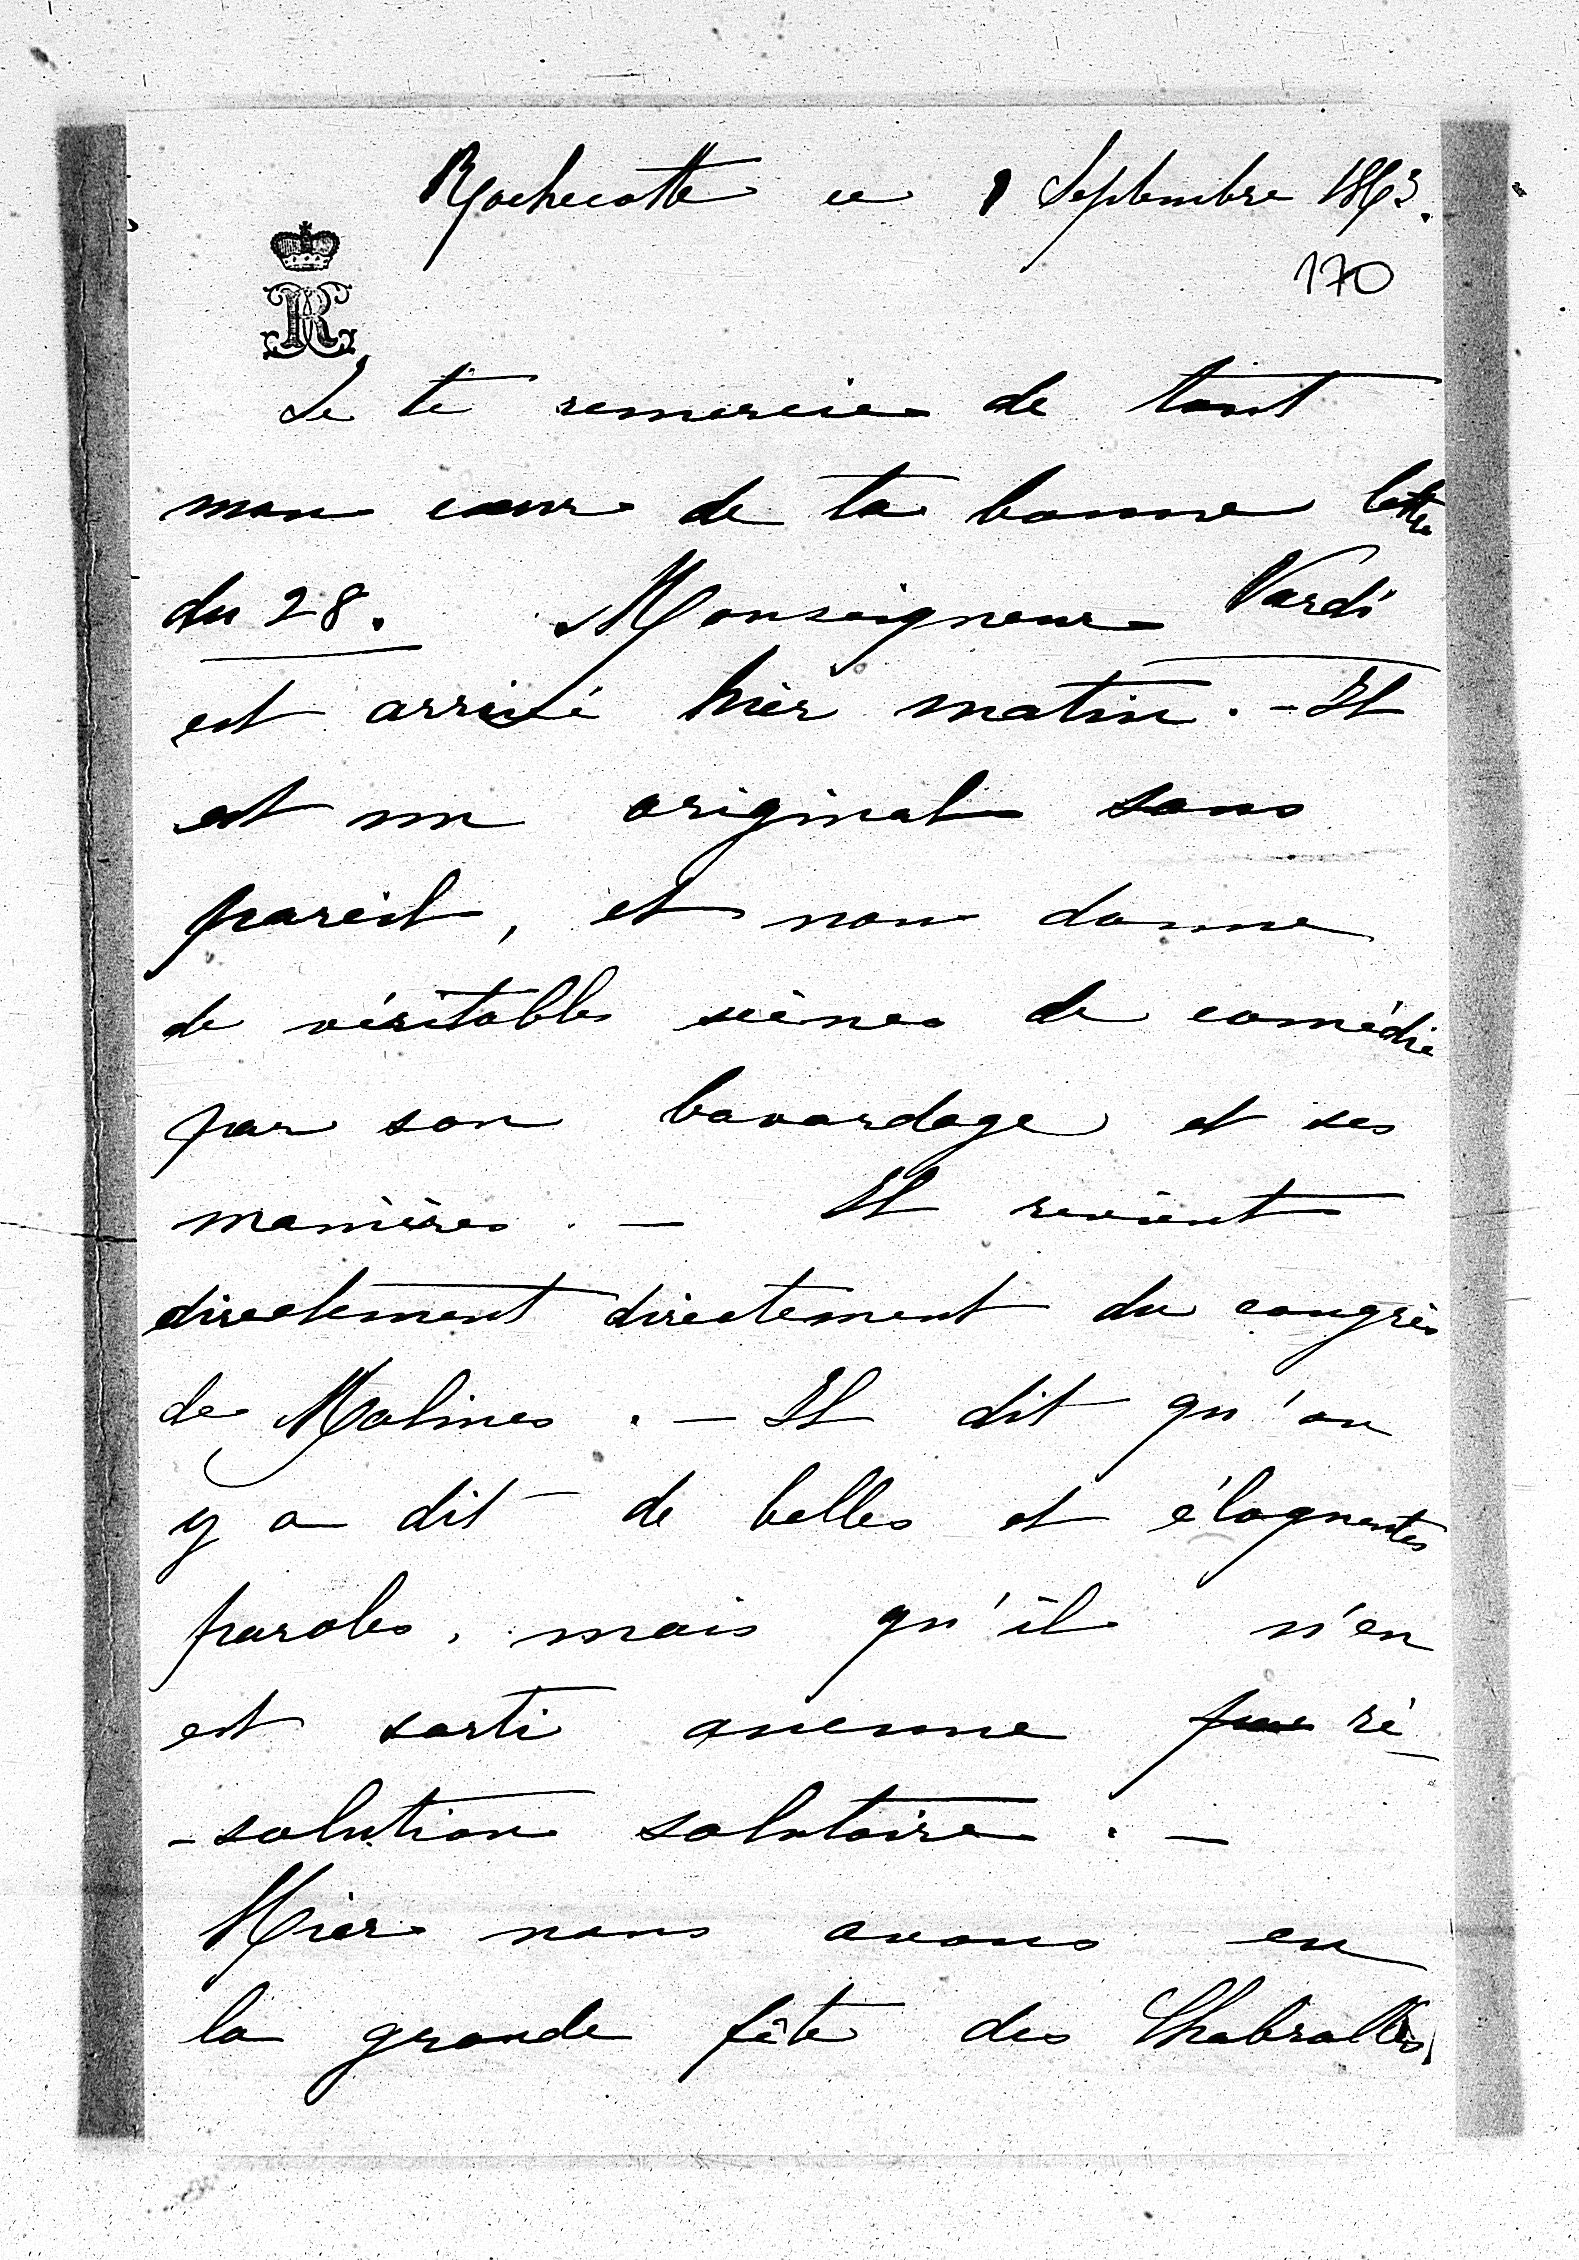 Rochecotte ce 1 Septembre 1863.
170
Je te remercie de tout
mon cœur de ta bonne lettre
du 28. Monseigneur Nardi
est arrivé hier matin. - Il
est un original sans
pareil, et nous donne
de véritables scènes de comédie
par son bavardage et ses
manières. - Il revient
directement directement du congrès
de Malines. - Il dit qu'on
y a dit de belles et éloquentes
paroles, mais qu'il n'en
est sorti aucune ré
-solution salutaire. -
Hier nous avons eu
la grande fête des